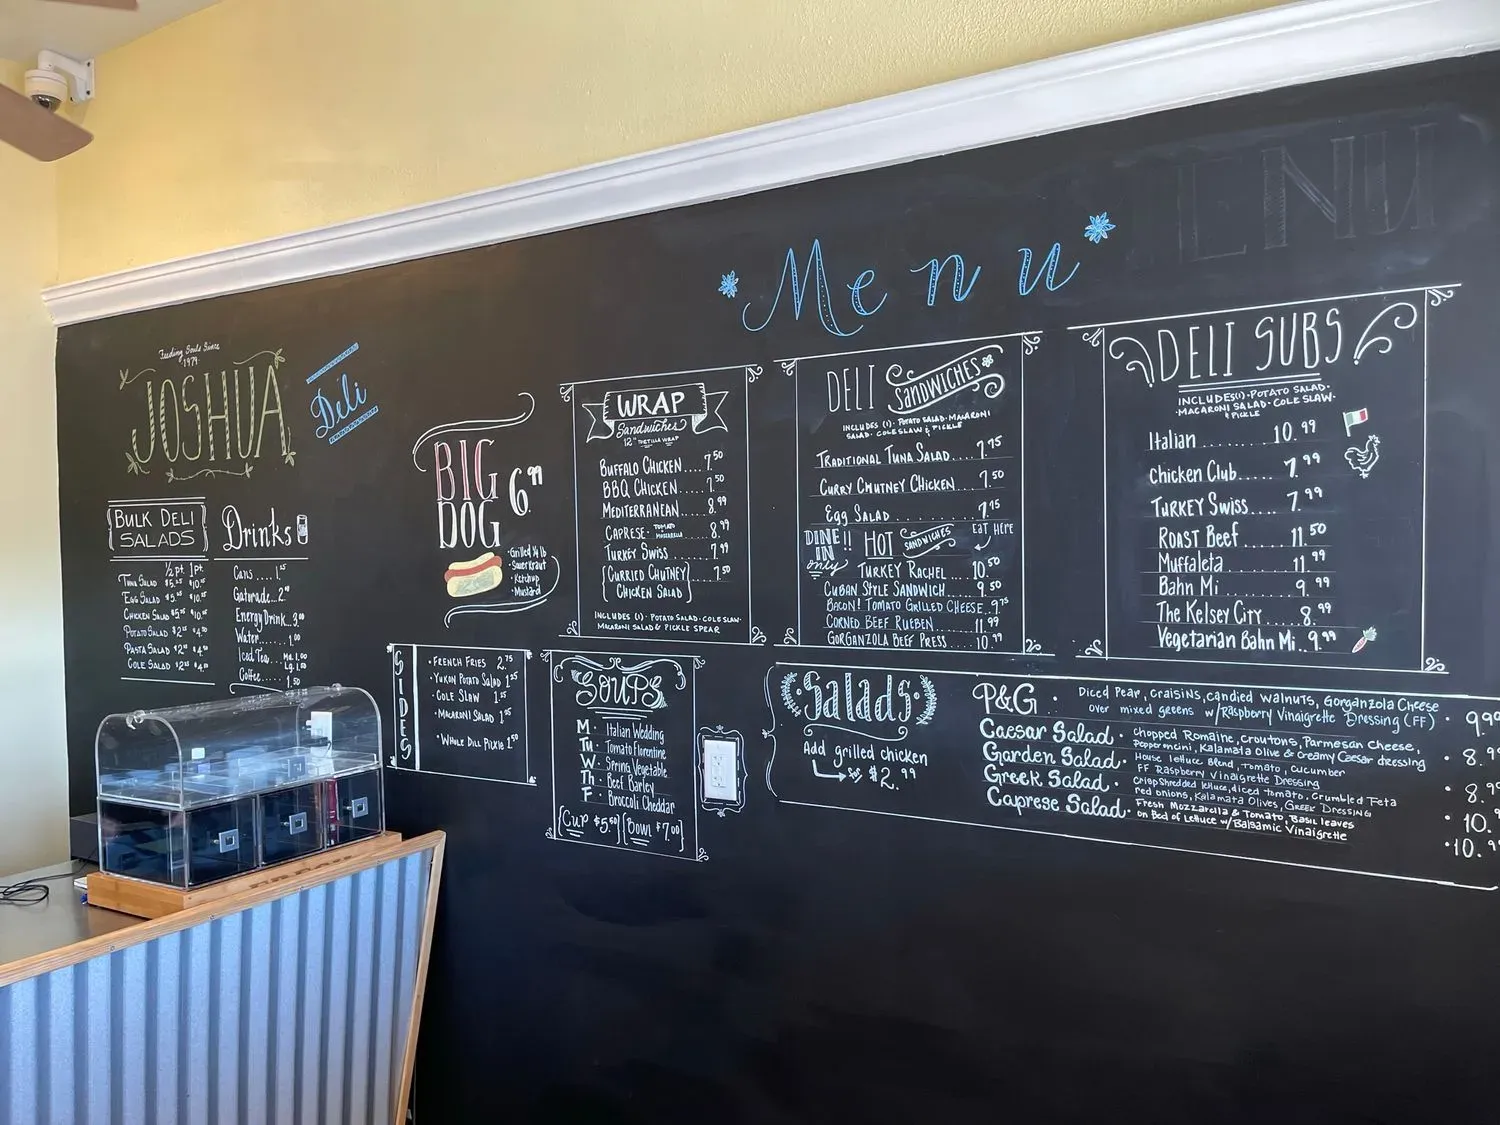 ENU
*Menu*
Feeding Souls Since
1979
JOSHUA
Deli
BULK DELI
SALADS
½ pt. 1 pt.
TUNA SALAD $5.25 $10.25
EGG SALAD $5.25 $10.25
CHICKEN SALAD $5.25 $10.25
POTATO SALAD
PASTA SALAD
COLE SALAD
Drinks
Cans....
Gatorade..
Energy Drink..
Water...... 1.00
Iced Tea..
Coffee.... 1.50
BIG
DOG
6.99
•Grilled ¼ lb
•Sauerkraut
•Ketchup
•Mustard
WRAP
Sandwiches
12" TORTILLA WRAP
BUFFALO CHICKEN....7.50
BBQ CHICKEN.....7.50
MEDITERRANEAN....8.99
CAPRESE• TOMATO MOZZARELLA...8.99
TURKEY SWISS.....7.99
{CURRIED CHUTNEY}...7.50
CHICKEN SALAD
INCLUDES (1)•POTATO SALAD•COLESLAW•
MACARONI SALAD & PICKLE SPEAR
DELI SANDWICHES
INCLUDES (1)• POTATO SALAD•MACARONI
SALAD• COLE SLAW & PICKLE
TRADITIONAL TUNA SALAD....7.75
CURRY CHUTNEY CHICKEN....7.50
EGG SALAD............7.75
DINE!!
IN
only
HOT SANDWICHES
EAT HERE
TURKEY RACHEL....10.50
CUBAN STYLE SANDWICH....9.50
BACON! TOMATO GRILLED CHEESE..9.75
CORNED BEEF RUEBEN....11.99
GORGANZOLA BEEF PRESS....10.99
DELI SUBS
INCLUDES(1)•POTATO SALAD•
•MACARONI SALAD•COLE SLAW•
& PICKLE
Italian........10.99
Chicken Club.....7.99
TURKEY Swiss....7.99
ROAST Beef......11.50
Muffaleta.......11.99
Bahn Mi........9.99
The Kelsey City....8.99
Vegetarian Bahn Mi..9.99
SIDES
•FRENCH FRIES 2.75
•YUKON POTATO SALAD
•COLE SLAW
•MACARONI SALAD
•WHOLE DILL PICKLE 1.50
SOUPS
M• Italian Wedding
TU• Tomato Florentine
W• Spring Vegetable
Th• Beef Barley
F• Broccoli Cheddar
{Cup $5.50}{Bowl $7.00}
Salads•
Add grilled chicken
$2.99
P&G • Diced Pear, craisins, candied walnuts, Gorganzola Cheese
over mixed greens w/Raspberry Vinaigrette Dressing (FF) • 9.99
Caesar Salad• Chopped Romaine, croutons, Parmesan Cheese,
Pepperoncini, Kalamata Olive & Creamy Caesar dressing • 8.99
Garden Salad• House lettuce Blend, Tomato, cucumber
FF Raspberry Vinaigrette Dressing • 8.99
Greek Salad• Crisp shredded lettuce, diced tomato, Crumbled Feta
red onions, Kalamata Olives, Greek Dressing • 10.
Caprese Salad• Fresh Mozzarella & Tomato, Basil leaves
on Bed of Lettuce w/Balsamic Vinaigrette • 10.